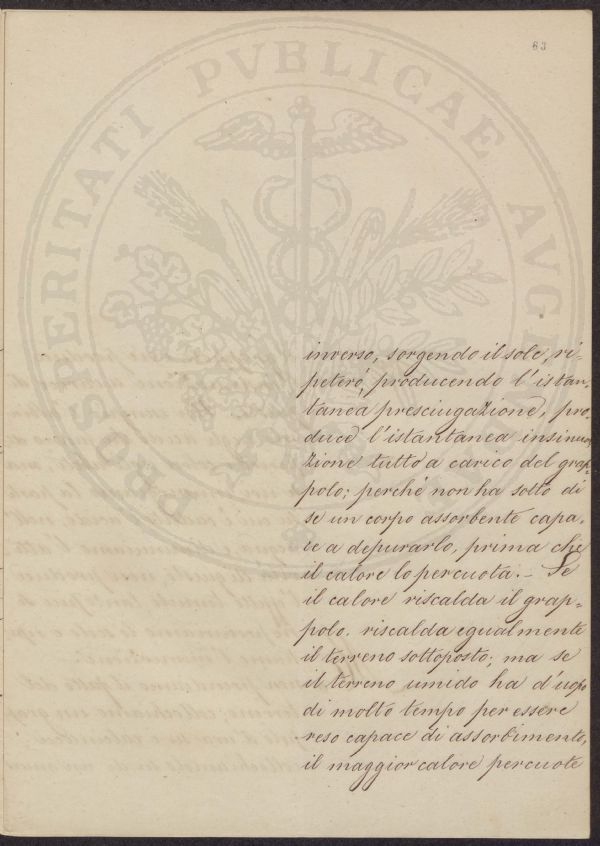 63
PROSPERITATI PVBLICAE AVGENDAE
inverso, sorgendo il sole, ri-
peterò, producendo l'istan-
tanea presciugazione, pro-
duce l'istantanea insinua-
zione tutto a carico del grap-
polo; perchè non ha sotto di
se un corpo assorbente capa-
ce a depurarlo, prima che
il calore lo percuota. – Se
il calore riscalda il grap-
polo. riscalda egualmente
il terreno sottoposto; ma se
il terreno umido ha d'uopo
di molto tempo per essere
reso capace di assorbimento,
il maggior calore percuote